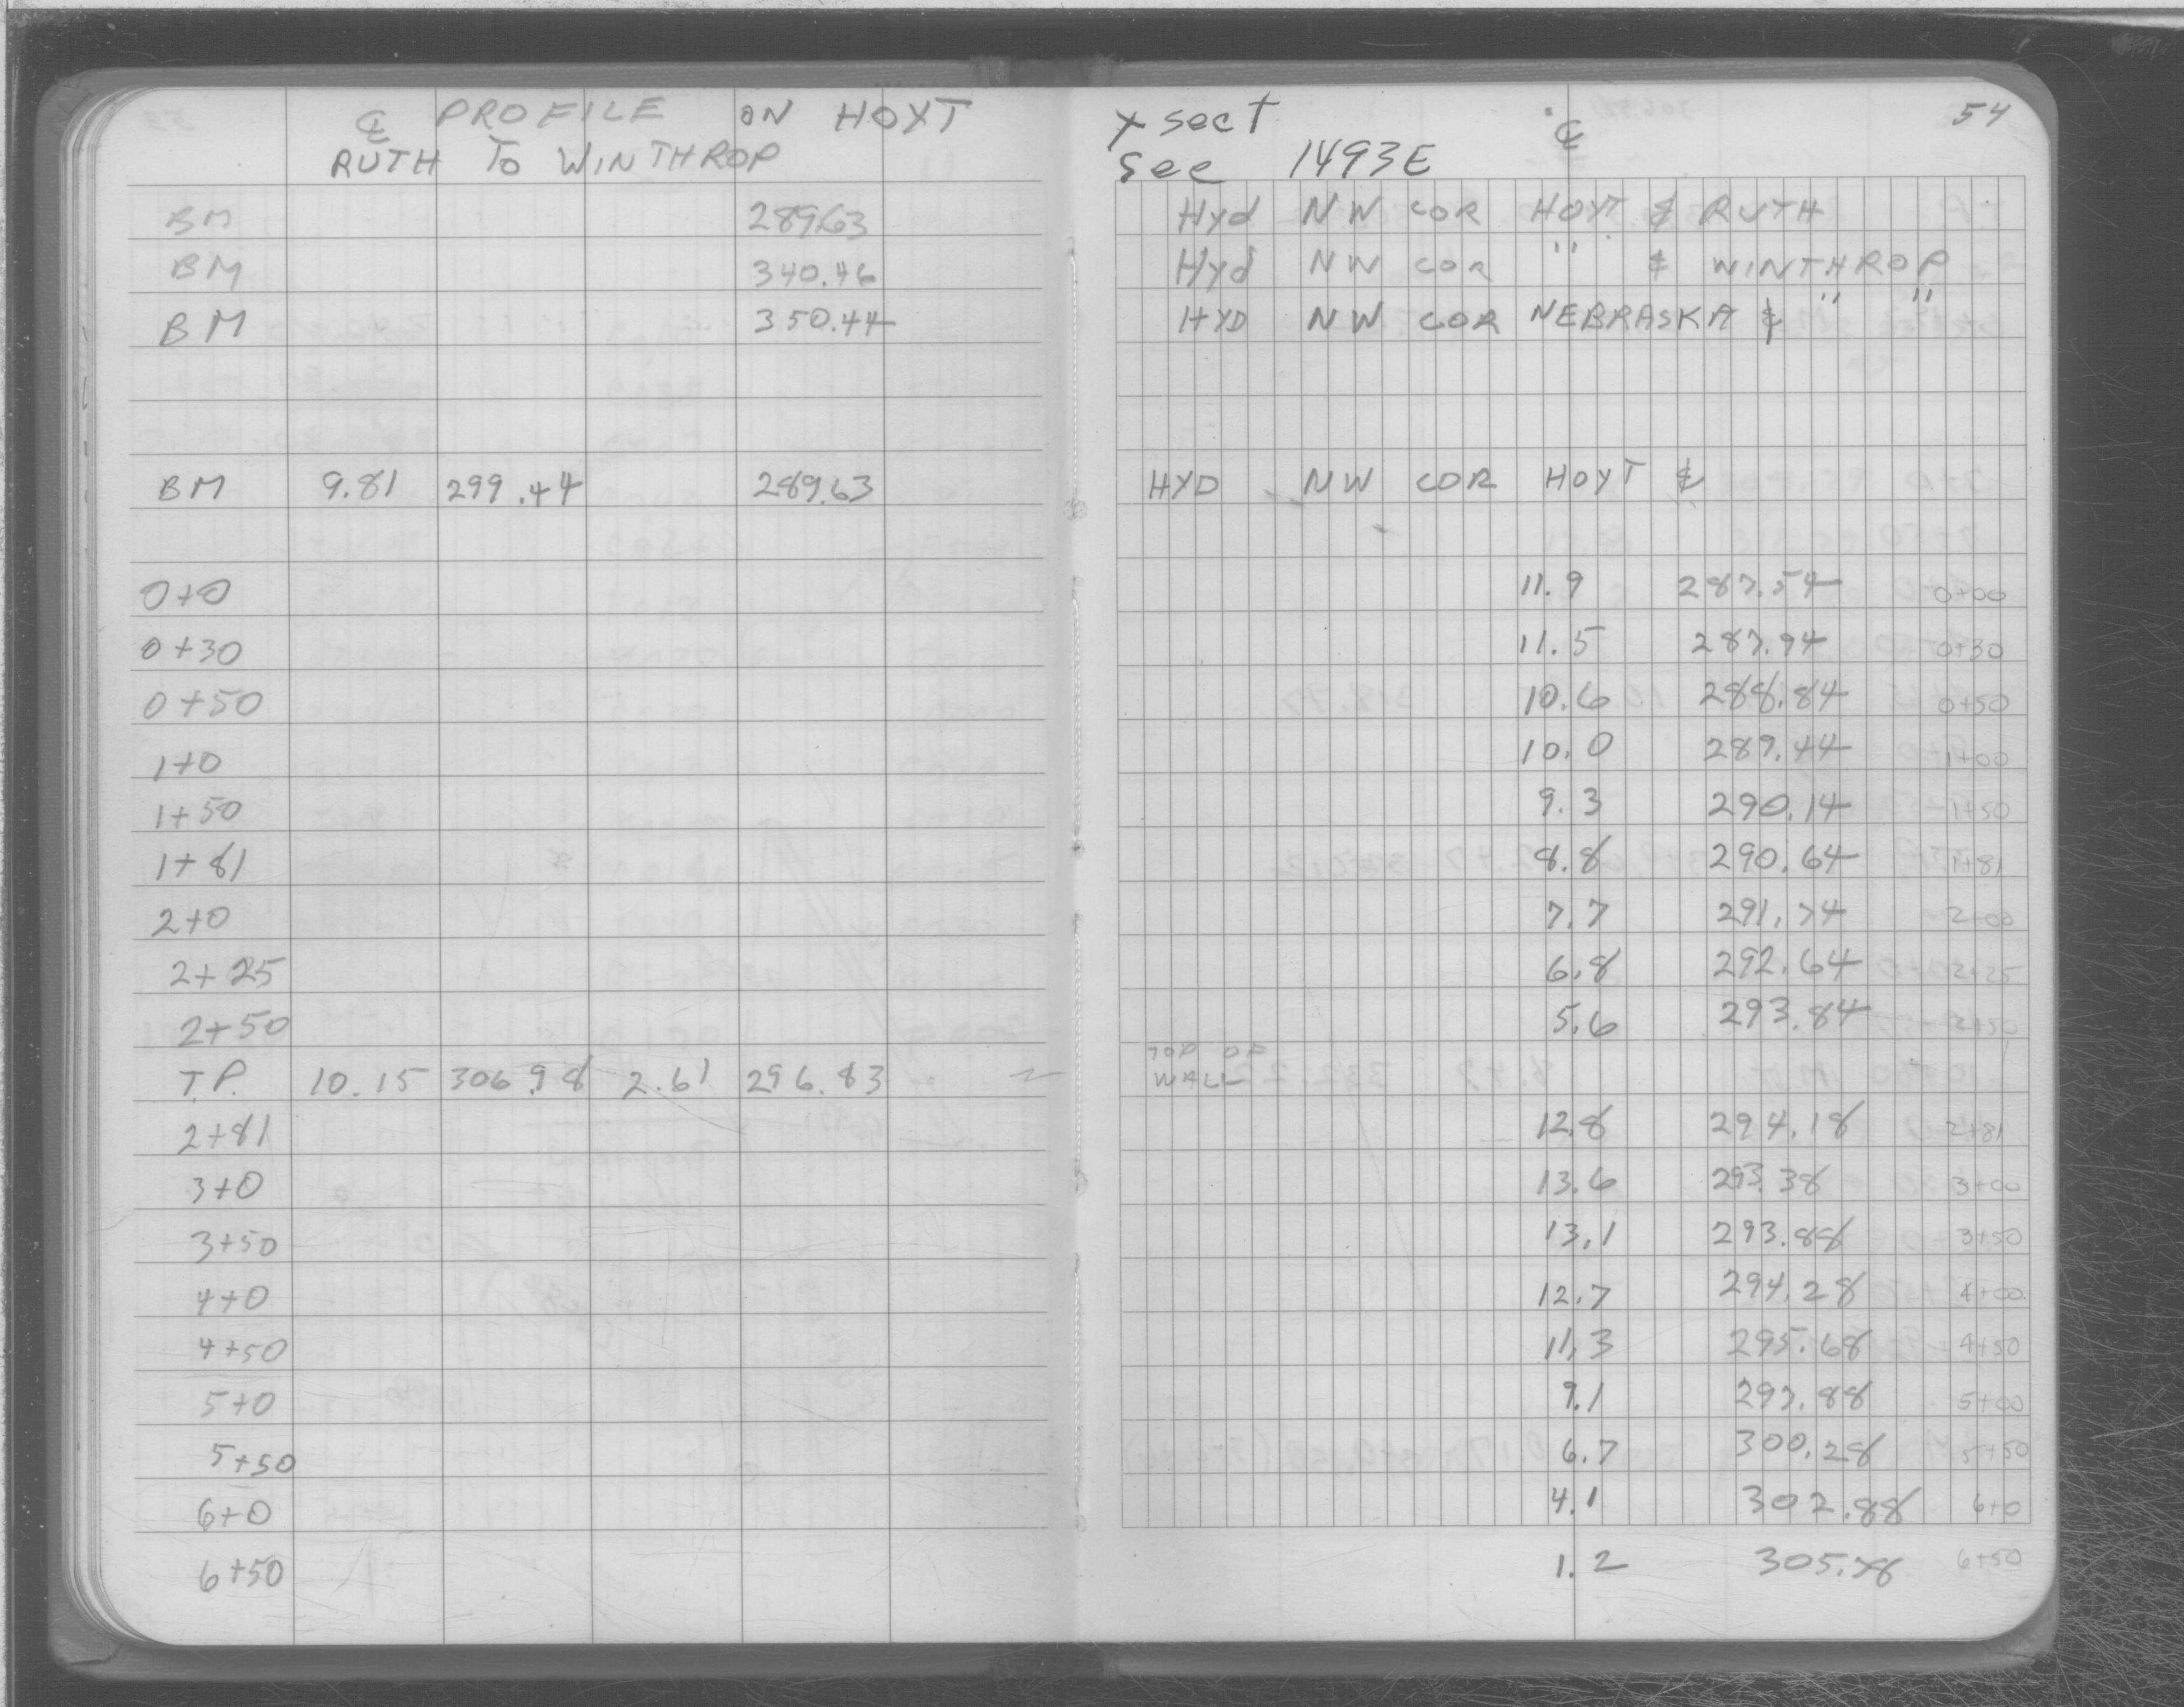 ℄ PROFILE ON HOYT
RUTH TO WINTHROP
X sect ℄ 54
See 1493E
BM 289.63 Hyd NW COR HOYT & RUTH
BM 340.46 Hyd NW COR " & WINTHROP
BM 350.44 HYD NW COR NEBRASKA & " "
BM 9.81 299.44 289.63 HYD NW COR HOYT &
0+0 11.9 287.54 0+00
0+30 11.5 287.94 0+30
0+50 10.6 288.84 0+50
1+0 10.0 289.44 1+00
1+50 9.3 290.14 1+50
1+81 8.8 290.64 1+81
2+0 7.7 291.74 2+00
2+25 6.8 292.64 2+25
2+50 5.6 293.84 2+50
T.P. 10.15 306.98 2.61 296.83 TOP OF WALL
2+81 12.8 294.18 2+81
3+0 13.6 293.38 3+00
3+50 13.1 293.88 3+50
4+0 12.7 294.28 4+00
4+50 11.3 295.68 4+50
5+0 9.1 297.88 5+00
5+50 6.7 300.28 5+50
6+0 4.1 302.88 6+0
6+50 1.2 305.78 6+50